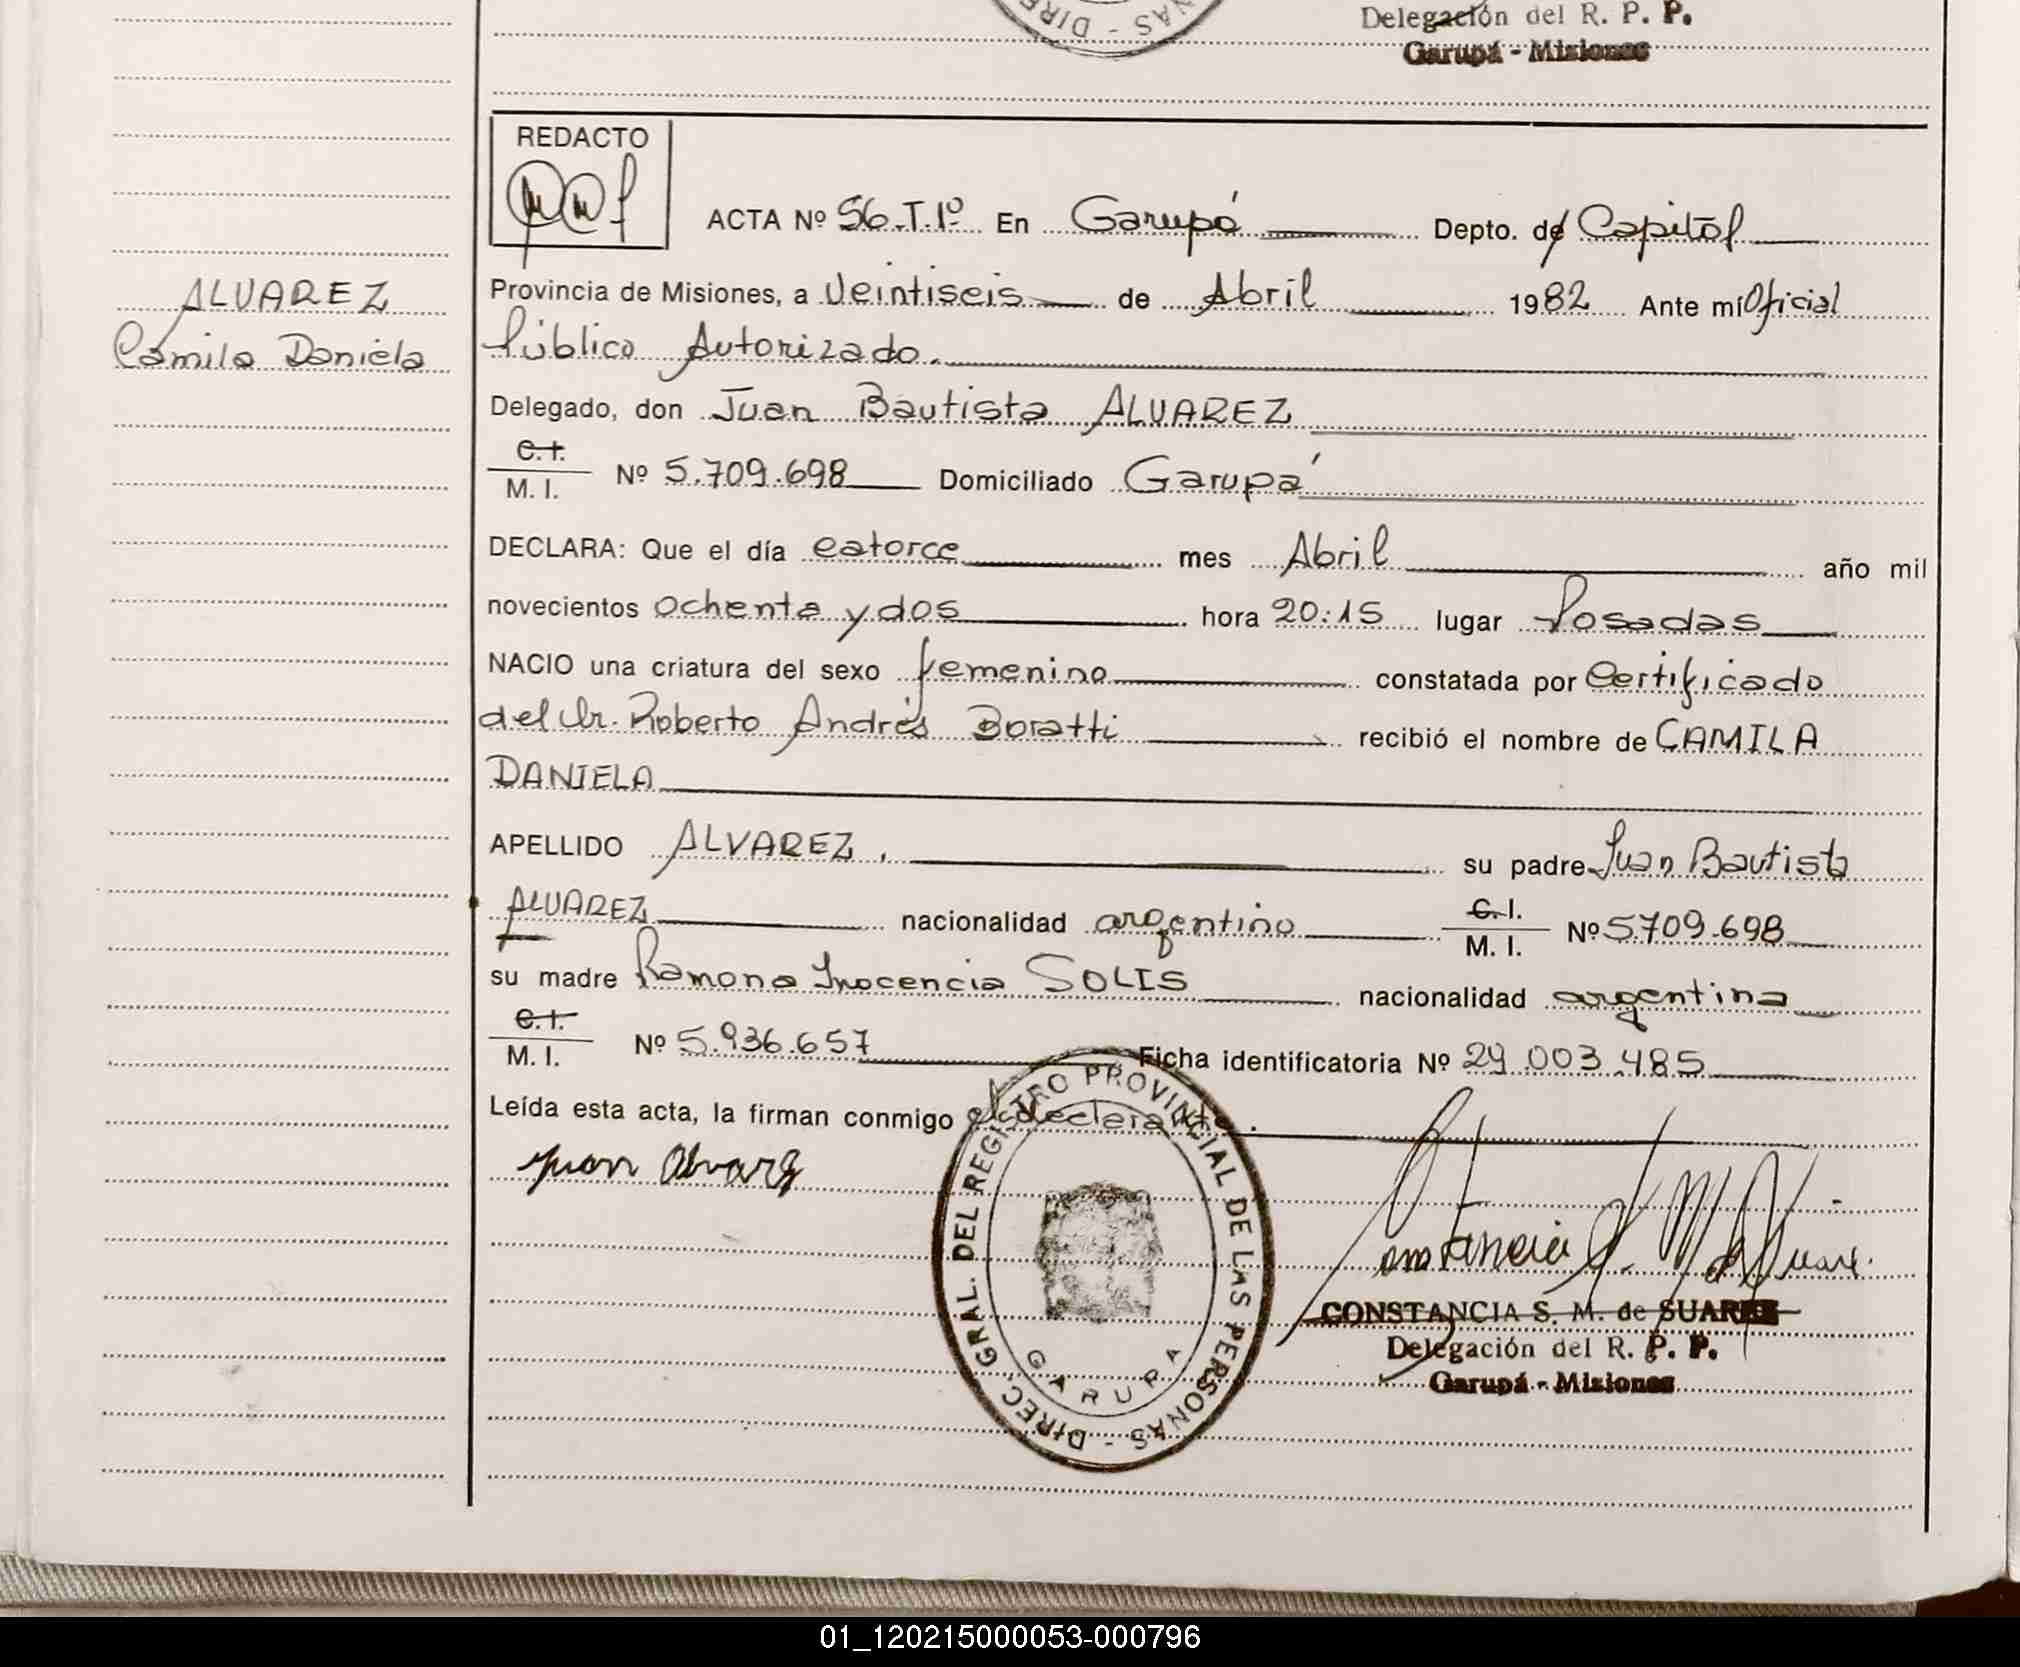 DIREC - NAS
Delegación del R. P. P.
Garupá - Misiones
REDACTO
ACTA Nº 56.T.1º En Garupá Depto. de Capital
Provincia de Misiones, a veintiseis de Abril 1982 Ante mí Oficial
ALVAREZ
Camila Daniela
Público Autorizado.
Delegado, don Juan Bautista ALVAREZ
C.I.
M. I. Nº 5.709.698 Domiciliado Garupá
DECLARA: Que el día catorce mes Abril año mil
novecientos ochenta y dos hora 20:15 lugar Posadas
NACIO una criatura del sexo femenino constatada por Certificado
del Dr. Roberto Andrés Boratti recibió el nombre de CAMILA
DANIELA
APELLIDO ALVAREZ, su padre Juan Bautista
ALVAREZ nacionalidad argentino C.I. M. I. Nº 5.709.698
su madre Ramona Inocencia SOLIS nacionalidad argentina
C.I.
M. I. Nº 5.936.657 Ficha identificatoria Nº 29.003.485
Leída esta acta, la firman conmigo el declarante.
Juan Alvarez
DIREC. GRAL. DEL REGISTRO PROVINCIAL DE LAS PERSONAS -
GARUPA
Constancia S. M. de Suarez
CONSTANCIA S. M. de SUAREZ
Delegación del R. P. P.
Garupá - Misiones
01_120215000053-000796